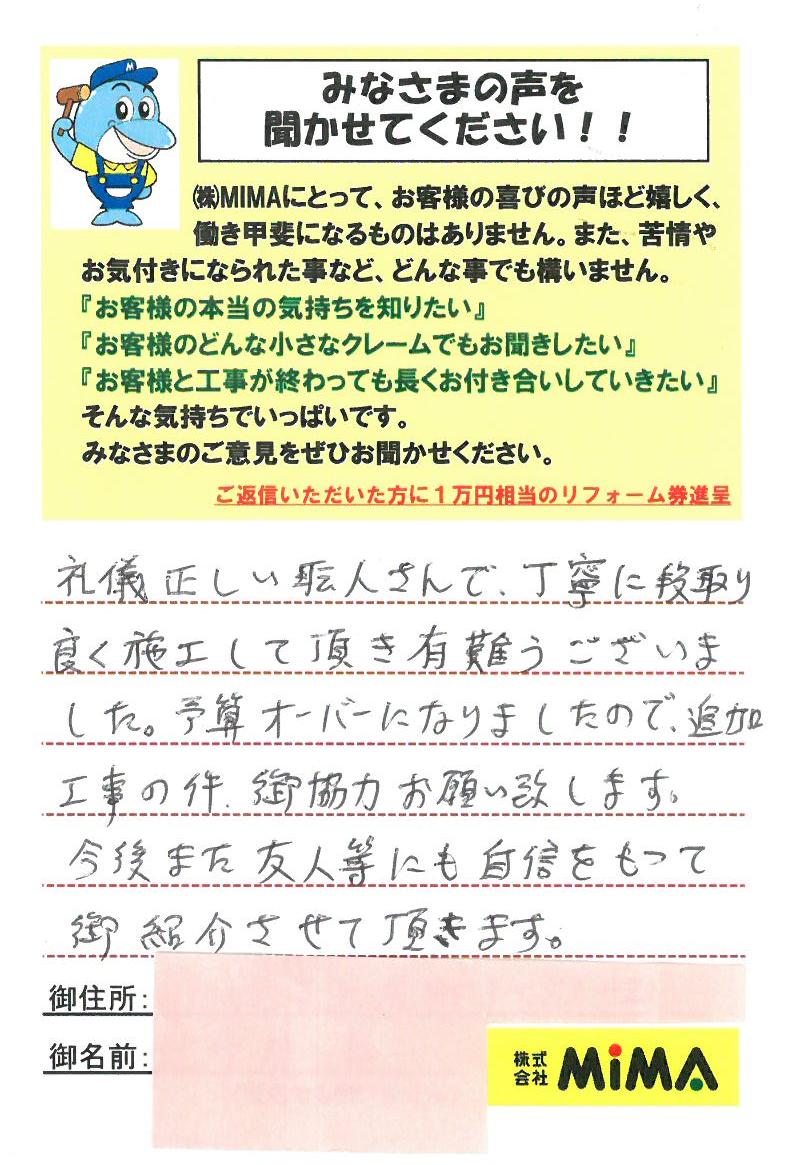 M
みなさまの声を
聞かせてください！！
㈱MIMAにとって、お客様の喜びの声ほど嬉しく、
働き甲斐になるものはありません。また、苦情や
お気付きになられた事など、どんな事でも構いません。
『お客様の本当の気持ちを知りたい』
『お客様のどんな小さなクレームでもお聞きしたい』
『お客様と工事が終わっても長くお付き合いしていきたい』
そんな気持ちでいっぱいです。
みなさまのご意見をぜひお聞かせください。
ご返信いただいた方に１万円相当のリフォーム券進呈
礼儀正しい職人さんで、丁寧に段取り
良く施工して頂き有難うございま
した。予算オーバーになりましたので、追加
工事の件、御協力お願い致します。
今後また友人等にも自信をもって
御紹介させて頂きます。
御住所：
御名前：
株式会社 MiMA